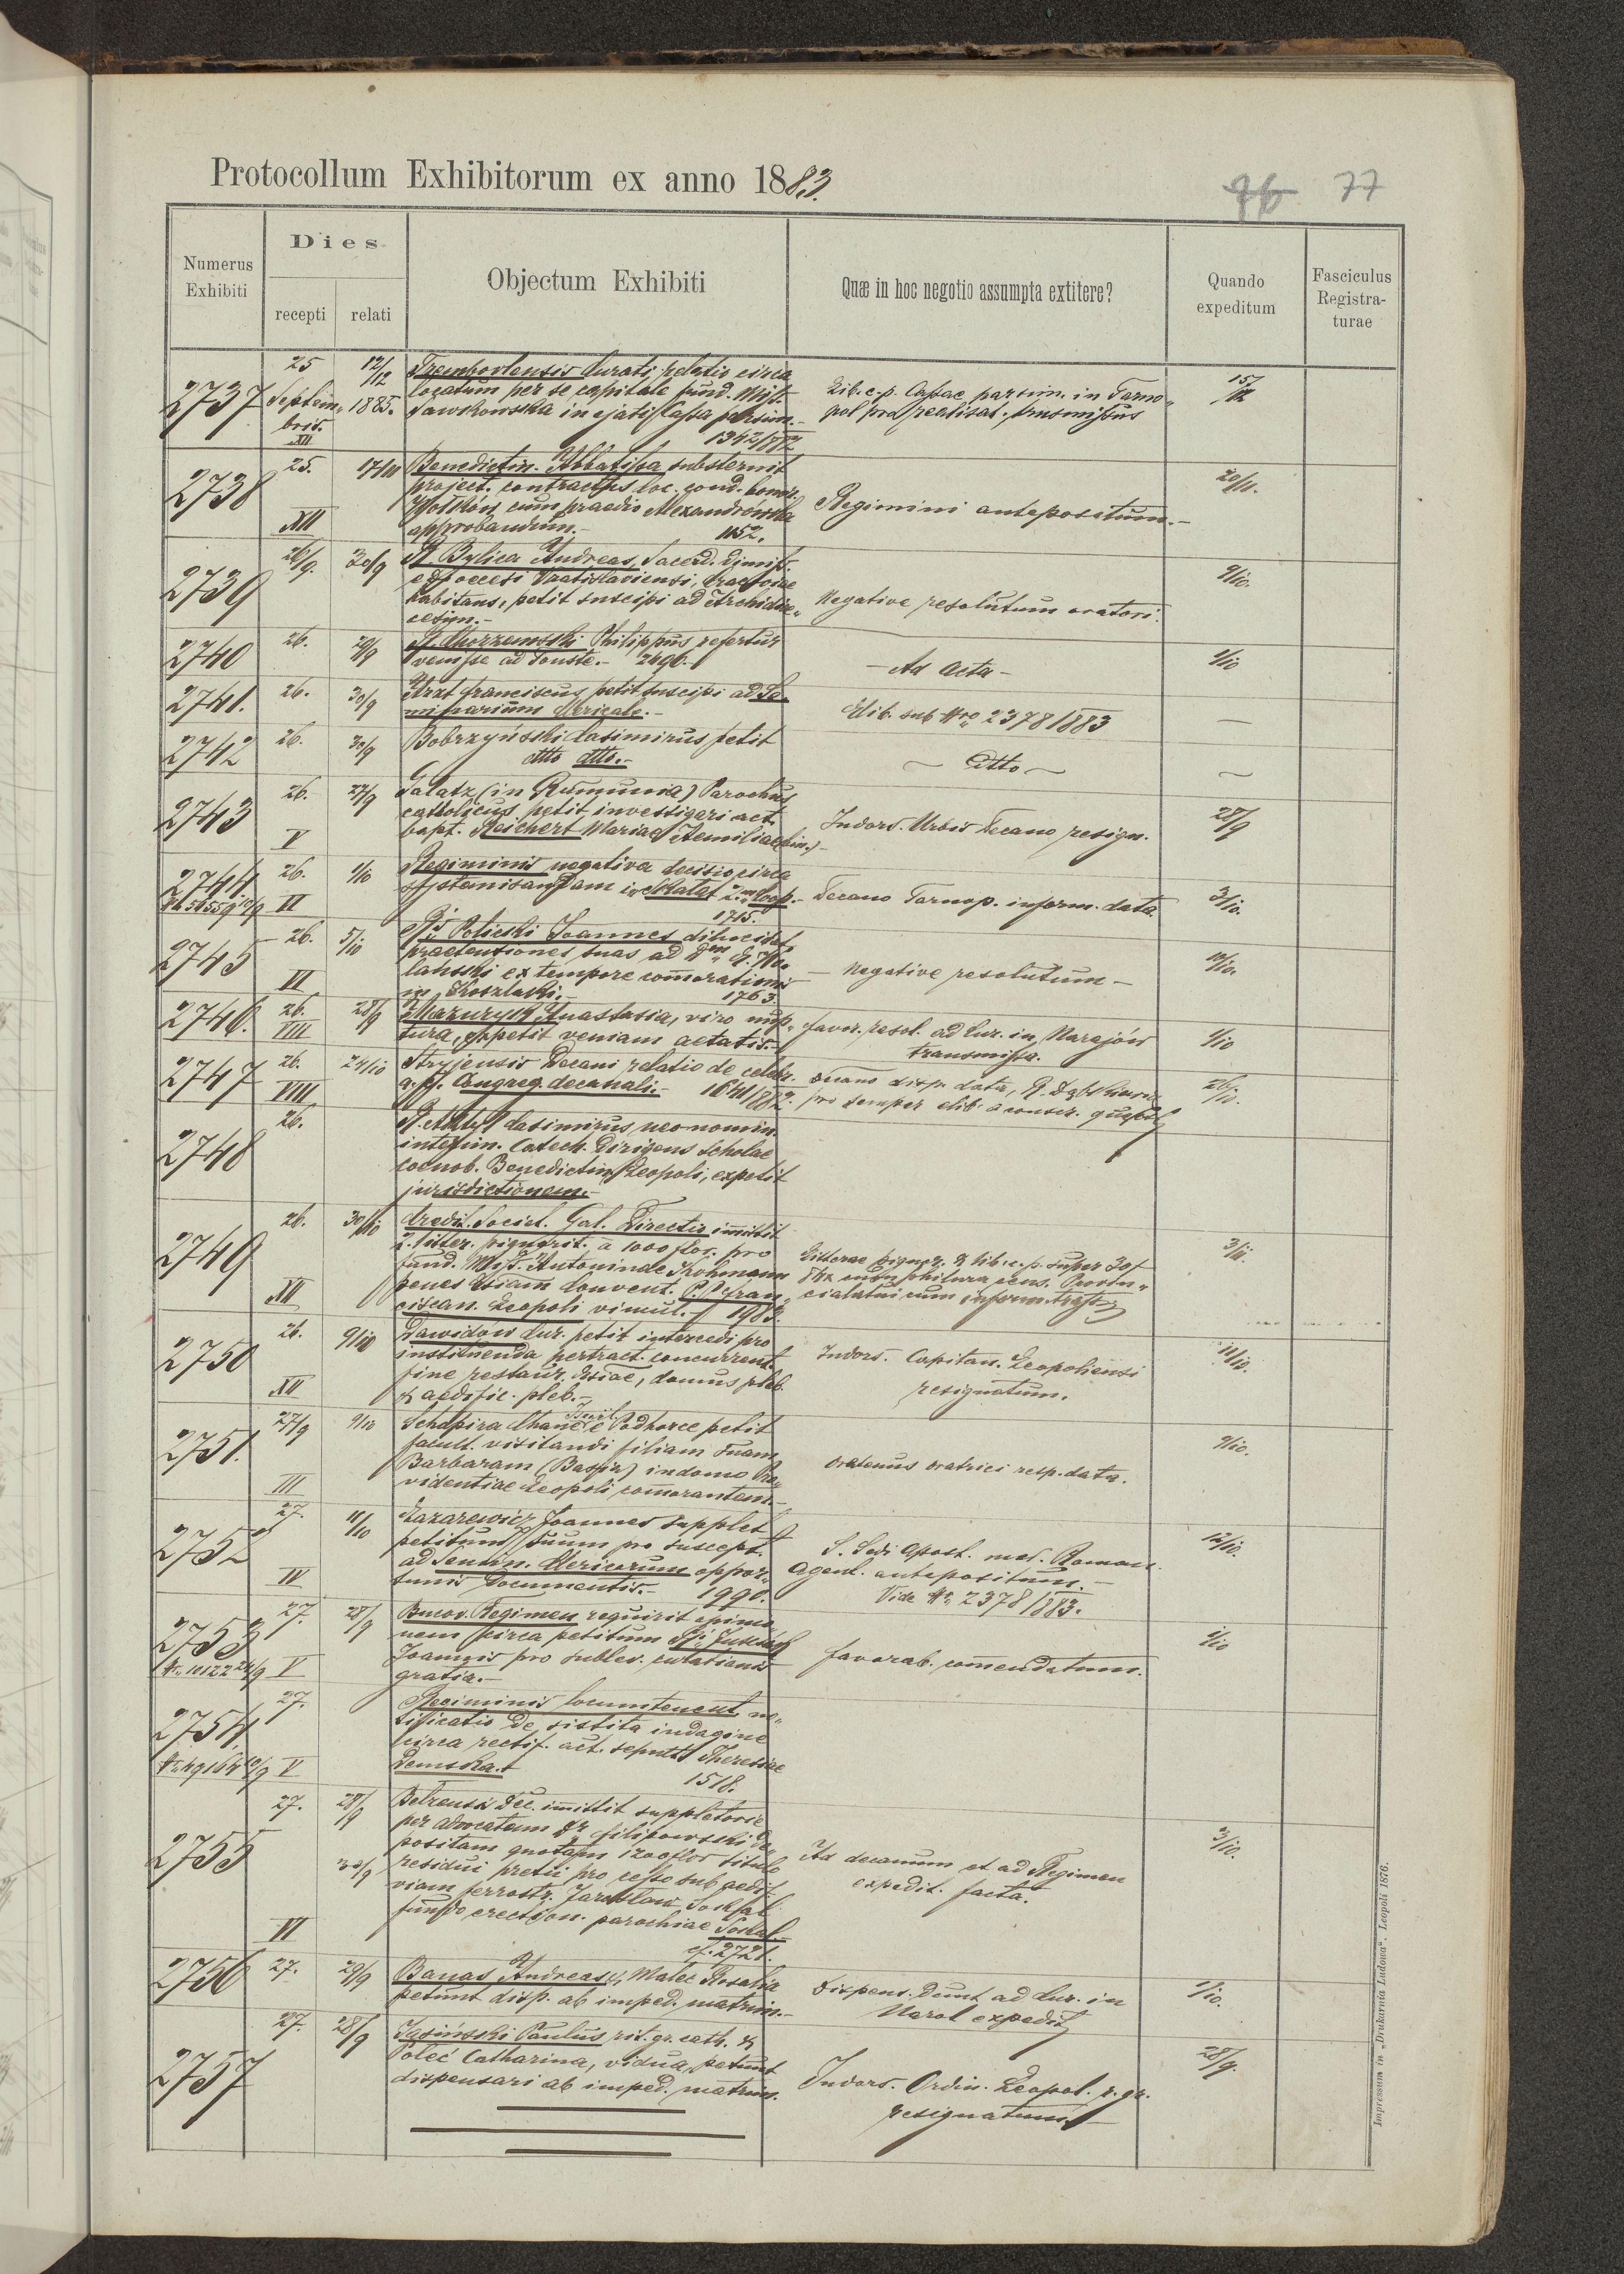 Protocollum Exhibitorum ex anno 1883.
76 77
Numerus Exhibiti
Dies
recepti
relati
Objectum Exhibiti
Quæ in hoc negotio assumpta extitere?
Quando expeditum
Fasciculus Registra-
turae
2737
25 Septem-
bris.
XII
12/12 1885.
Trembovlensis Curati relatio circa
locatum per se capitale fund. Miss.
Sawkowska in ejatis Cassa parsim.-
1342/882
Lib. c. p. Cassae parsim. in Tarno-
pol pro realisat. transmissus
15/12
2738
25.
XII
17/11
Benedictin. Abbatissa substernit
project. contractus loc. cond. bonor.
cum praedio Alexandrówka
approbandum.-
1152.
Regimini antepositum.-
20/11.
2739
26/9.
30/9
R. Bylica Andreas, Sacerd. Dimiss.
e Dioecesi Vratislaviensi, Cracoviae
habitans, petit suscipi ad Archidioe-
cesim.-
Negative resolutum oratori.
9/10.
2740
26.
29/9
Philippus refertur
venisse ad Touste.- 2496.-
- Ad Acta -
1/10
2741.
26.
30/9
Arzt Franciscus petit suscipi ad Se-
minarium Clericale.-
Elib. sub Nro 2378/883
-
2742
26.
30/9
Bobrzyński Casimirus petit
dtto dtto.-
- dtto -
-
2743
26.
V
27/9
Galatz (in Rumunia) Parochus
catholicus petit investigari act.
bapt. Reichert Mariae Aemiliae (bin.)-
Indors. Urbis Decano resign.
28/9
2744.
26.
VI
1/10
Regiminis negativa decisio circa
systemisandam in 2m Coop.-
1715.
Decano Tarnop. inform. data.
3/10.
2745
26.
VI
5/10
Rs Policski Joannes dilucidat
praetensiones suas ad
ex tempore commorationis
in Koszlaki.-
1763.
- Negative resolutum -
10/10.
2746.
26.
VIII
28/9
Mazuryk Anastasia, viro nup-
tura, expetit veniam aetatis.-
favor. resol. ad Cur. in Narajów
transmissa.
1/10
2747
26.
VIII
24/10
Stryjensis Decani relatio de celebr.
Congreg. decanali.- 1641/882.
pro semper elib. a
26/10.
2748
26.
Casimirus neonomin.
interim. Catech. Dirigens Scholae
coenob. Benedictin. Leopoli, expetit
jurisdictionem.-
2749
26.
XII
30/10
Credit. Societ. Gal. Directio immittit
2. litter. pignorit. à 1000 flor. pro
fund. Miss. Antoninae Krohmann
penes Ecciam Convent. P.P. Fran-
ciscan. Leopoli vincul.- 1983.
Litterae pignor. & lib. c. p. super 30f
Provin-
cialatui cum inform.
3/11.
2750
26.
XII
9/10
Dawidów Cur. petit intercedi pro
instituenda pertract. concurrent.
fine restaur. Ecciae, domus pleb.
& aedific. pleb.-
Indors. Capitan. Leopoliensi
resignatum.
11/10.
2751.
27/9
III
9/10
Schapira Chane e Podhorce petit
facult. visitandi filiam suam
Barbaram (Basia) in domo Pro-
videntiae Leopoli commorantem.-
oretenus oratrici resp. data.
9/10.
2752
27.
IV
11/10
Łazarewicz Joannes supplet
petitum suum pro suscept.
ad Semin. Clericorum oppor-
tunis Documentis.-
1990.
S. Sedi Apost. med. Roman.
Agent. antepositum.-
Vide Nro 2378/883.
12/10.
2753
Nr. 10122 24/9
27.
V
28/9
Bucov. Regimen requirit opinio-
nem circa petitum
Joannis pro sublev. curationis
gratia.-
favorab. comendatum.
1/10
2754.
Nr. 49164 20/9
27.
V
Regiminis locumtenent. no-
tificatio de sistita indagine
circa rectif. act. sepult. Theresiae
Demska.-
1518.
2755
27.
VI
28/9
30/9
Belzensis Dec. immittit suppletorie
per advocatum Dr Filipowski de-
positam quotam 1200 flor titulo
residui pretii pro cesso sub aedif.
viam ferrostr. Jaroslau Sokal
fundo erection. parochiae Sokal.-
cf. 2721.
Ad decanum et ad Regimen
expedit. facta.
3/10.
2756
27.
29/9
Banas Andreas & Malec Rosalia
petunt disp. ab imped. matrim.-
Dispens. Dunt ad Cur. in
Narol expedit
1/10.
2757
27.
28/9
Jasiński Paulus rit. gr. cath. &
Poleć Catharina, vidua, petunt
dispensari ab imped. matrim.
Indors. Ordin. Leopol. r. gr.
resignatum.-
28/9.
Impressum in „Drukarnia Ludowa“. Leopoli 1876.